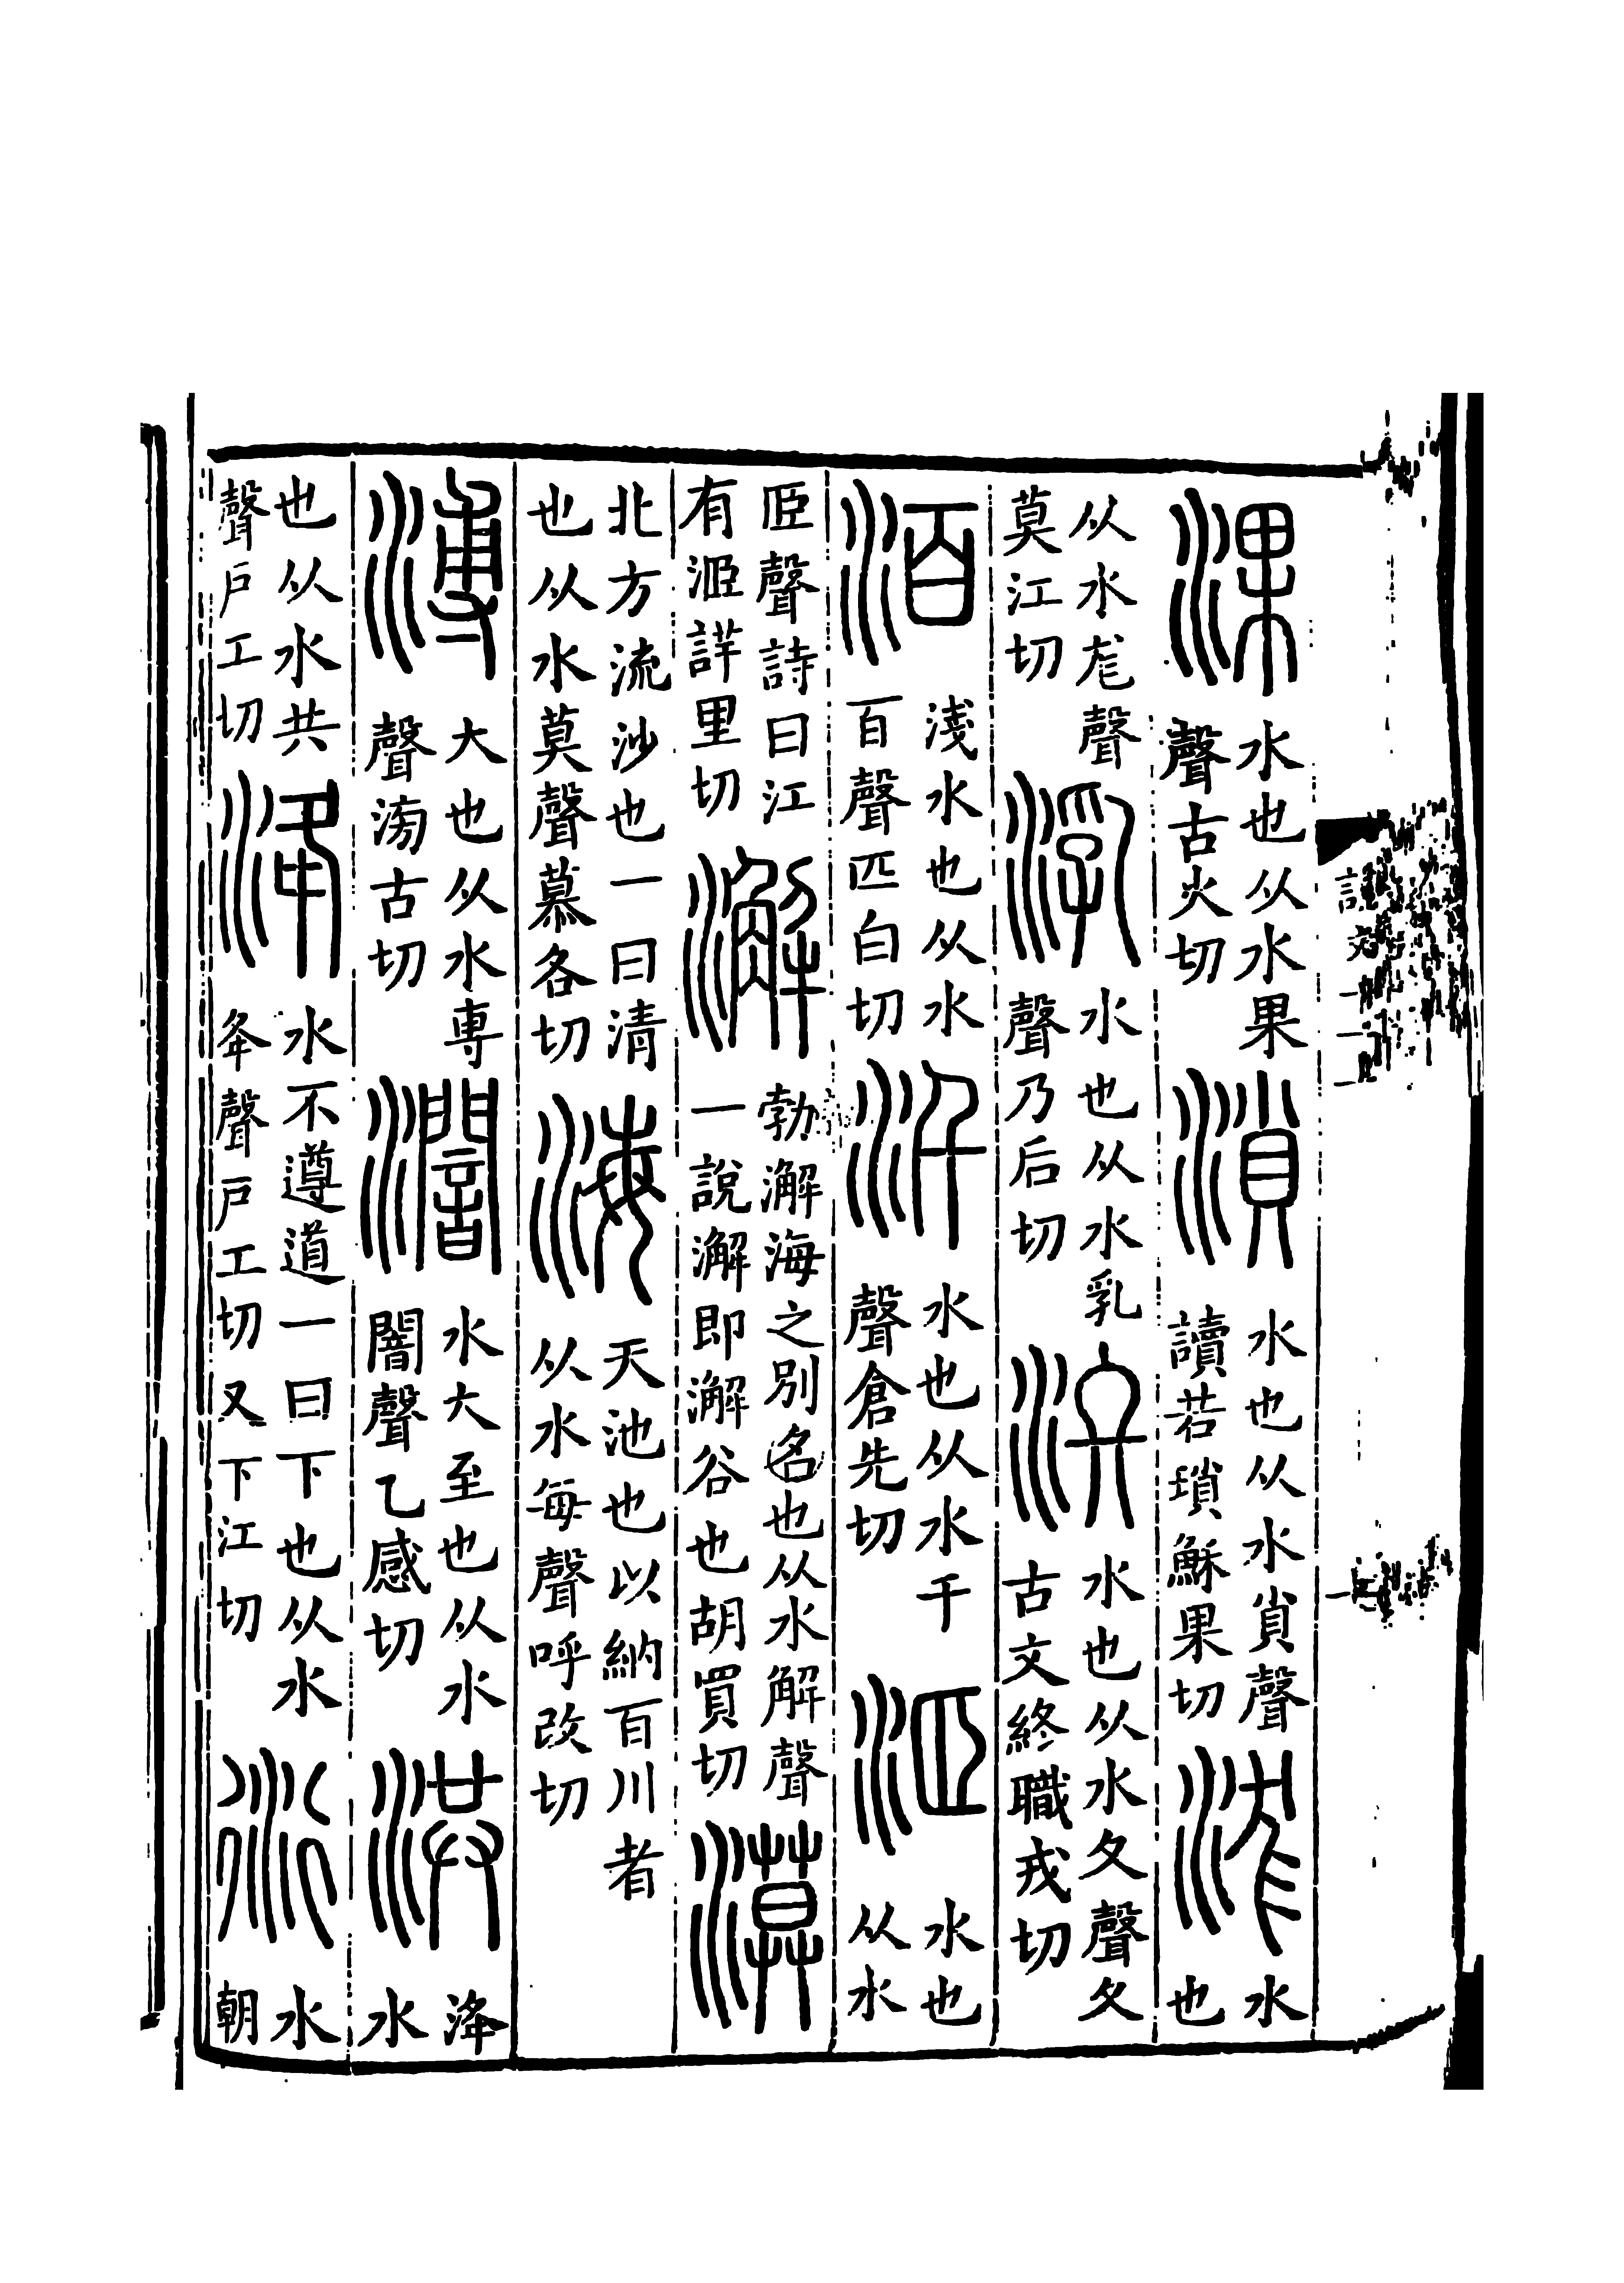 淉水也从水果聲古火切溑水也从水𧴪聲讀若瑣穌果切浝水也
从水尨聲莫江切㳶水也从水乳聲乃后切泈水也从水夂聲夂古文終職戎切
洦淺水也从水百聲匹白切汘水也从水千聲倉先切洍水也从水
𦣞聲詩曰江有洍詳里切澥勃澥海之別名也从水解聲一說澥即澥谷也胡買切漠
北方流沙也一曰清也从水莫聲慕各切海天池也以納百川者从水每聲呼改切
溥大也从水尃聲滂古切水大至也从水闇聲乙感切洪洚水
也从水共聲戶工切洚水不遵道一曰下也从水夅聲戶工切又下江切衍水朝